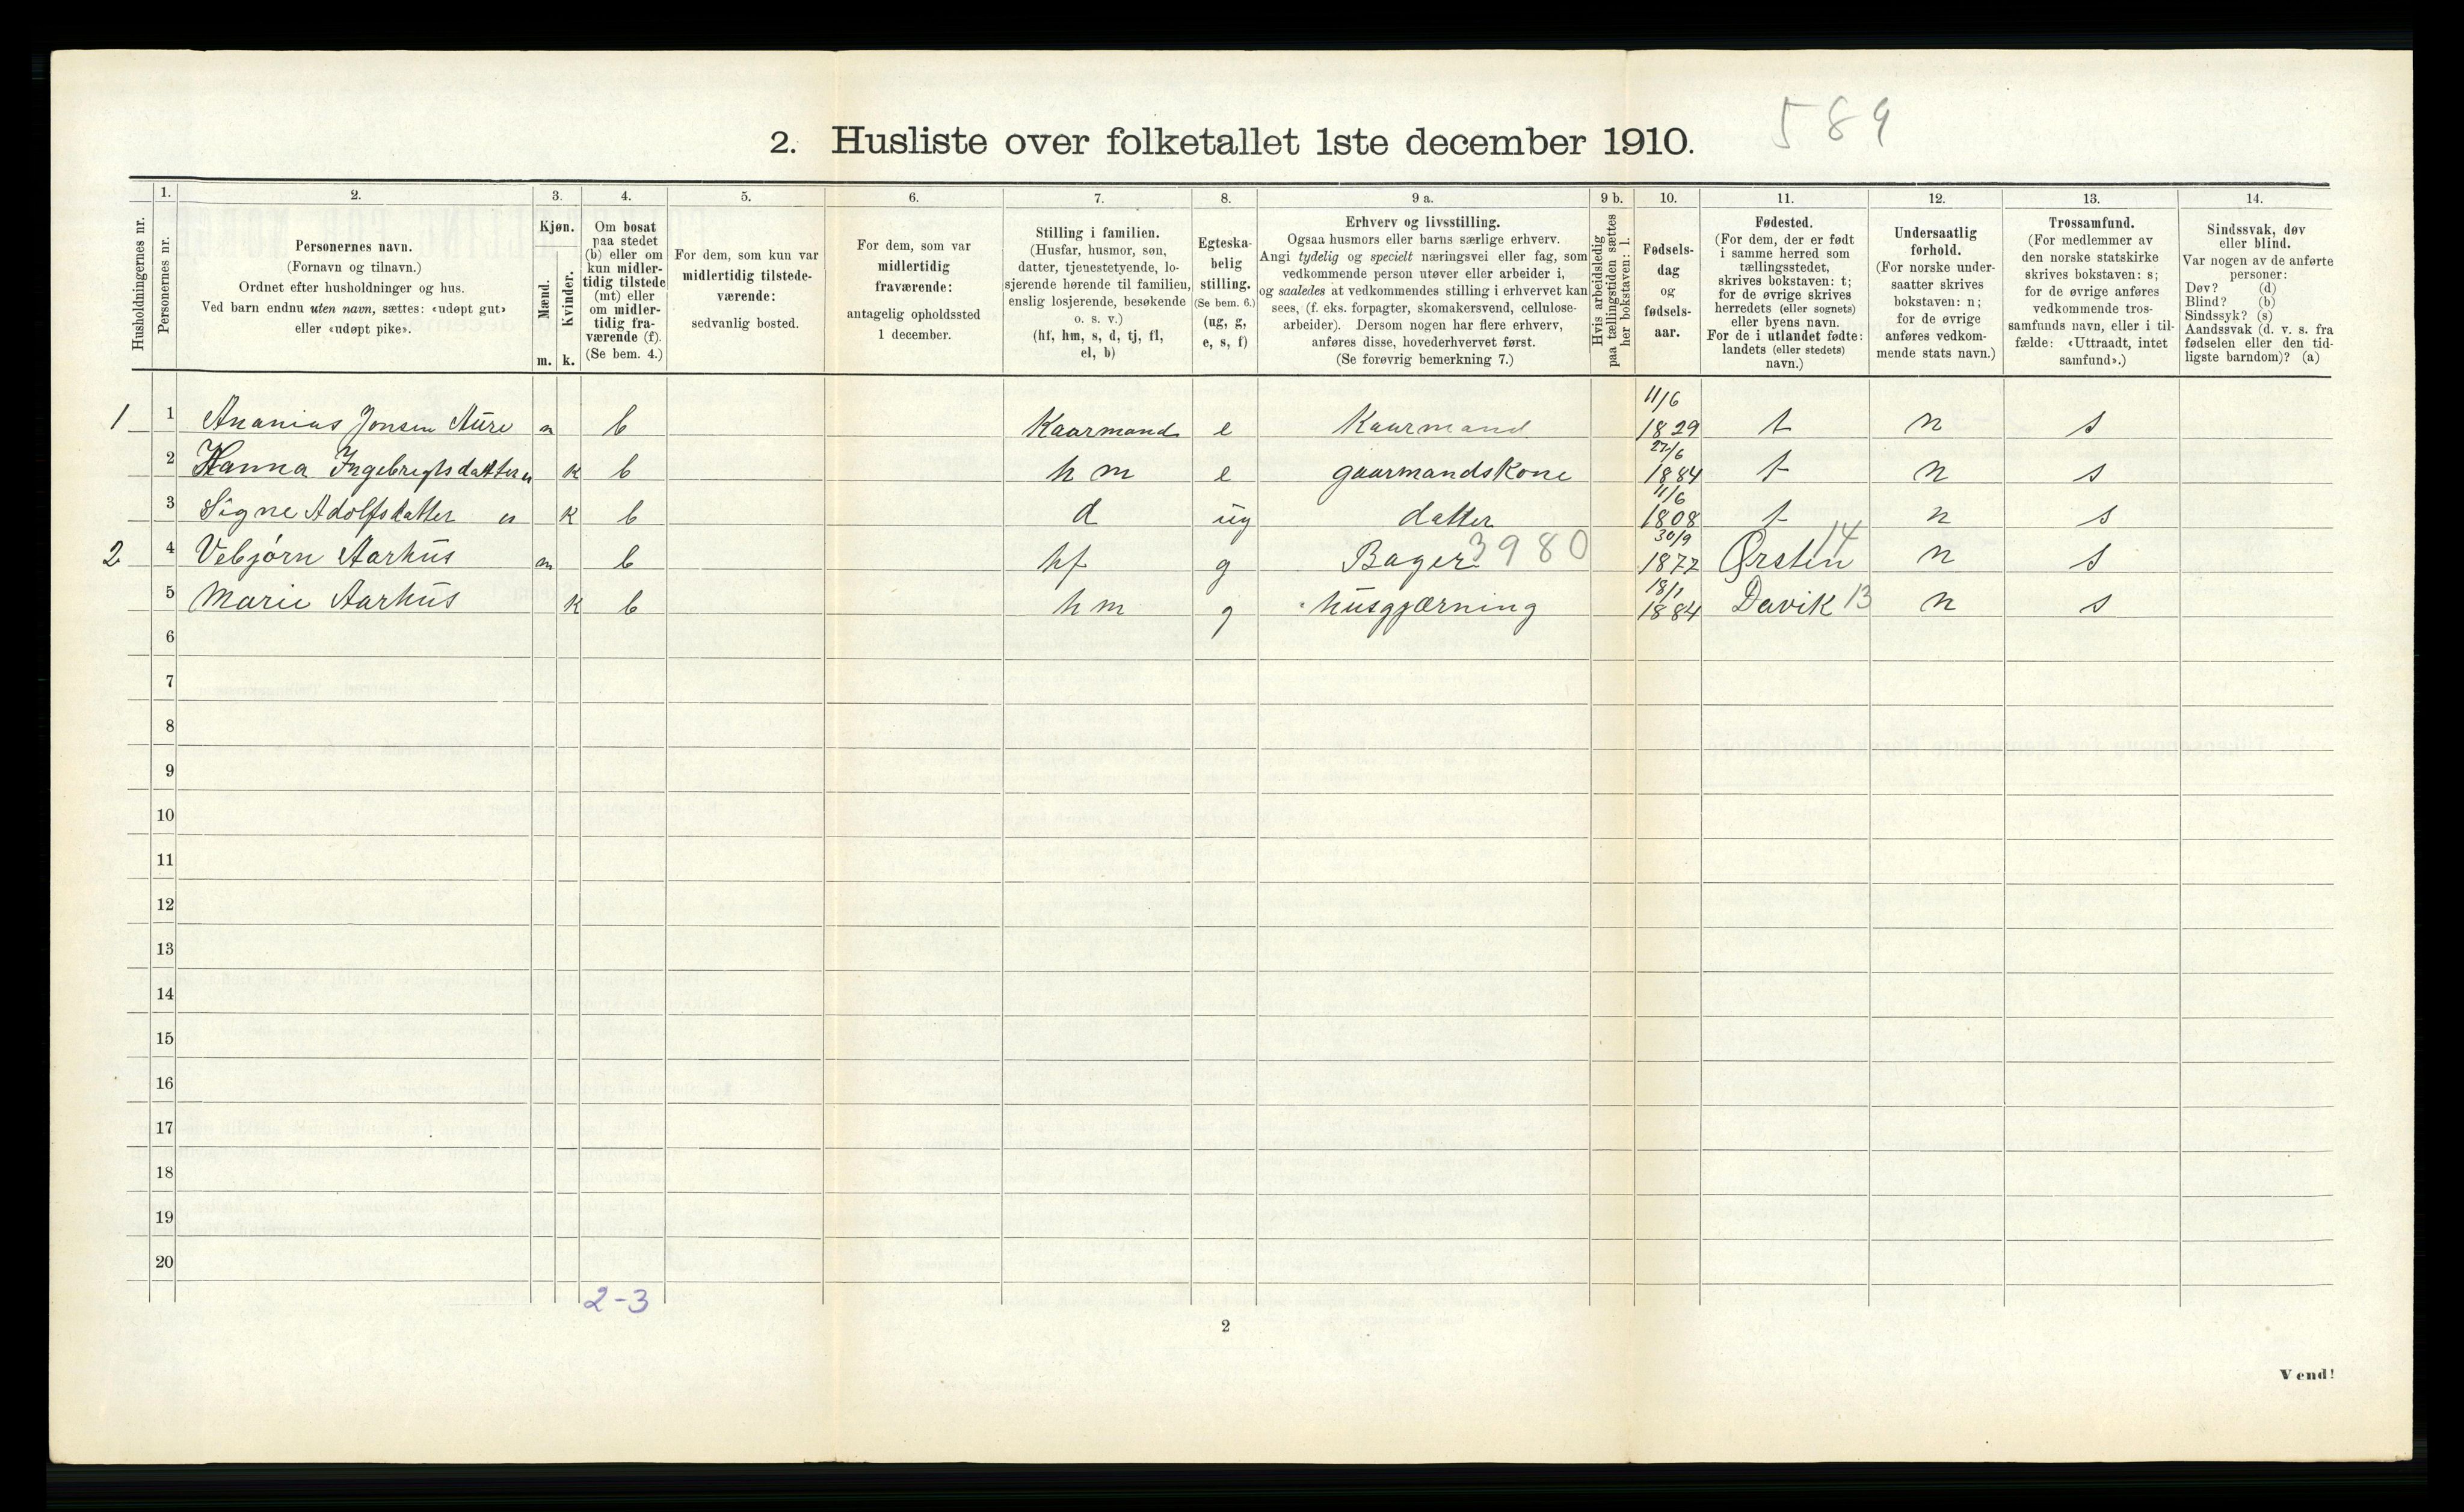 589
2. Husliste over folketallet 1ste december 1910.
Husholdningernes nr.
1.
Personernes nr.
2.
Personernes navn.
(Fornavn og tilnavn.)
Ordnet efter husholdninger og hus.
Ved barn endnu uten navn, sættes: «udøpt gut»
eller «udøpt pike».
3.
Kjøn.
Mænd.
Kvinder.
m. k.
4.
Om bosat
paa stedet
(b) eller om
kun midler-
tidig tilstede
(mt) eller
om midler-
tidig fra-
værende (f).
(Se bem. 4.)
5.
For dem, som kun var
midlertidig tilstede-
værende:
sedvanlig bosted.
6.
For dem, som var
midlertidig
fraværende:
antagelig opholdssted
1 december.
7.
Stilling i familien.
(Husfar, husmor, søn,
datter, tjenestetyende, lo-
sjerende hørende til familien,
enslig losjerende, besøkende
o. s. v.)
(hf, hm, s, d, tj, fl,
el, b)
8.
Egteska-
belig
stilling.
(Se bem. 6.)
(ug, g,
e, s, f)
9 a.
Erhverv og livsstilling.
Ogsaa husmors eller barns særlige erhverv.
Angi tydelig og specielt næringsvei eller fag, som
vedkommende person utøver eller arbeider i,
og saaledes at vedkommendes stilling i erhvervet kan
sees, (f. eks. forpagter, skomakersvend, cellulose-
arbeider). Dersom nogen har flere erhverv,
anføres disse, hovederhvervet først.
(Se forøvrig bemerkning 7.)
9 b.
Hvis arbeidsledig
paa tællingstiden sættes
her bokstaven: l.
10.
Fødsels-
dag
og
fødsels-
aar.
11.
Fødested.
(For dem, der er født
i samme herred som
tællingsstedet,
skrives bokstaven: t;
for de øvrige skrives
herredets (eller sognets)
eller byens navn.
For de i utlandet fødte:
landets (eller stedets)
navn.)
12.
Undersaatlig
forhold.
(For norske under-
saatter skrives
bokstaven: n;
for de øvrige
anføres vedkom-
mende stats navn.)
13.
Trossamfund.
(For medlemmer av
den norske statskirke
skrives bokstaven: s;
for de øvrige anføres
vedkommende tros-
samfunds navn, eller i til-
fælde: «Uttraadt, intet
samfund».)
14.
Sindssvak, døv
eller blind.
Var nogen av de anførte
personer:
Døv? (d)
Blind? (b)
Sindssyk? (s)
Aandssvak (d. v. s. fra
fødselen eller den tid-
ligste barndom)? (a)
1 1 Ananias Jonsen Aure m b Kaarmand e Kaarmand 11/6 1829 t n s
2 Hanna Ingebregtsdatter " k b hm e gaarmandskone 27/6 1884 t n s
3 Signe Adolfsdatter " k b d ug datter 11/6 1808 t n s
2 4 Vebjørn Aarhus m b hf g Bager 3980 30/9 1877 Ørsten 14 n s
5 Marie Aarhus k b hm g husgjærning 18/1 1884 Davik 13 n s
6
7
8
9
10
11
12
13
14
15
16
17
18
19
20
2-3
2
Vend!